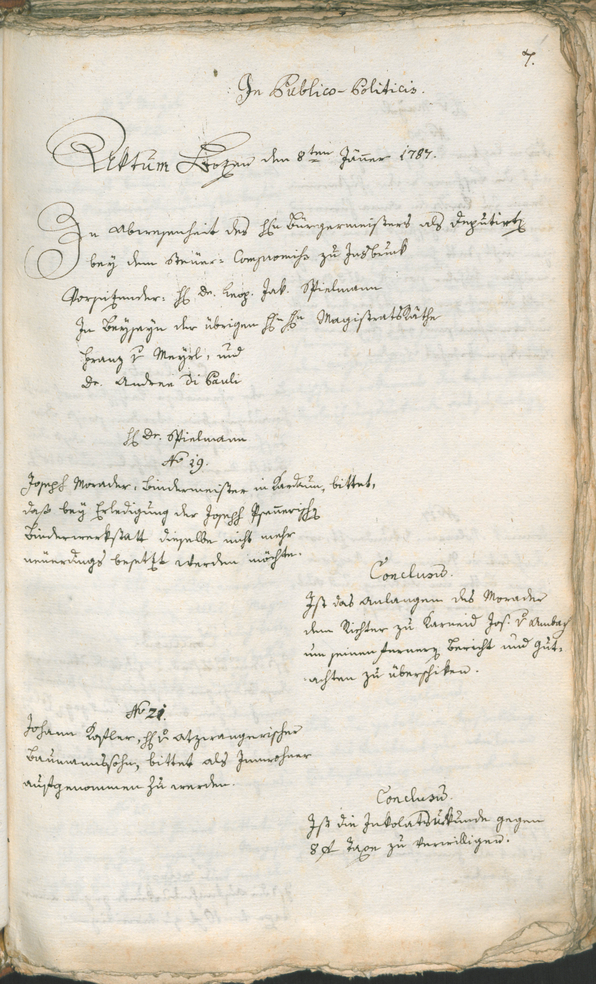 7.
In Publico-Politicis.
Actum Bozen den 8ten Jänner 1787.
In Abwesenheit des Hn Bürgermeisters als Deputirten
bey dem Steuer-Compromiss zu Insbruk
Vorsitzender: H. Dr. Leop. Jak. Spielmann
In Beyseyn der übrigen HH. Hn Magistratsräthe
Franz v Mayrl, und
Dr. Andree Di Pauli
H. Dr. Spielmann
No 19.
Joseph Morader, Bindermeister in Kardaun, bittet,
daß bey Erledigung der Joseph Psennerischen
Binderwerkstatt dieselbe nicht mehr
neuerdings besetzt werden möchte.
Conclusum.
Ist das Anlangen des Morader
dem Richter zu Karneid Jos. v Ambach
um seinen fernern Bericht und Gut-
achten zu überschiken.
No 21.
Johann Kofler, H. v Atzwangerischer
Baumannssohn, bittet als Innwohner
aufgenommen zu werden.
Conclusum.
Ist die Inkolatsurkunde gegen
8 f Taxe zu verwilligen.